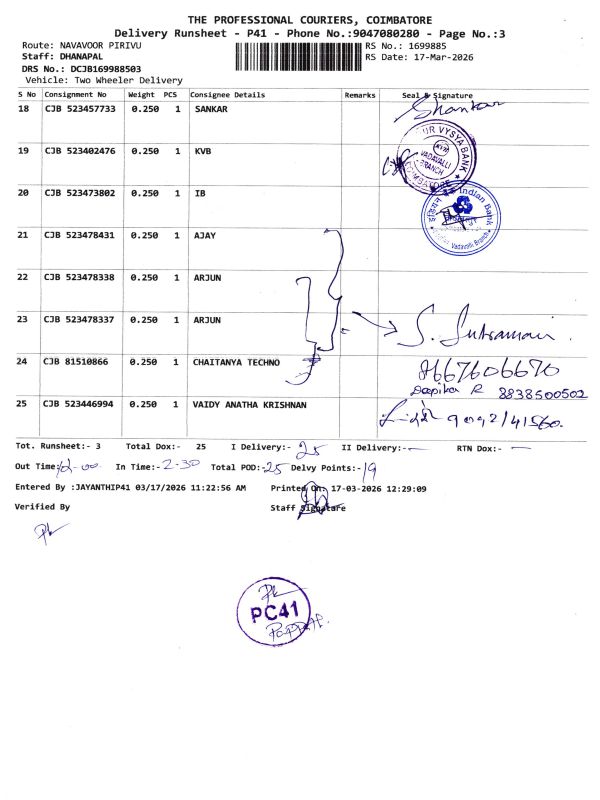 THE PROFESSIONAL COURIERS, COIMBATORE
Delivery Runsheet - P41 - Phone No.:9047080280 - Page No.:3
Route: NAVAVOOR PIRIVU
RS No.: 1699885
Staff: DHANAPAL
RS Date: 17-Mar-2026
DRS No.: DCJB169988503
Vehicle: Two Wheeler Delivery
S No Consignment No Weight PCS Consignee Details Remarks Seal & Signature
18 CJB 523457733 0.250 1 SANKAR Shankar
19 CJB 523402476 0.250 1 KVB
VYSYA BANK
KVB
VADAVALLI
BRANCH
COIMBATORE
20 CJB 523473802 0.250 1 IB
Indian Bank
Vadavalli Branch
21 CJB 523478431 0.250 1 AJAY
22 CJB 523478338 0.250 1 ARJUN
23 CJB 523478337 0.250 1 ARJUN
24 CJB 81510866 0.250 1 CHAITANYA TECHNO 8667606670
Deepika R 8838500502
25 CJB 523446994 0.250 1 VAIDY ANATHA KRISHNAN
Tot. Runsheet:- 3 Total Dox:- 25 I Delivery:- 25 II Delivery:- RTN Dox:-
Out Time:12-00 In Time:-2-30 Total POD:-25 Delvy Points:-19
Entered By :JAYANTHIP41 03/17/2026 11:22:56 AM Printed On: 17-03-2026 12:29:09
Verified By Staff Signature
PC41